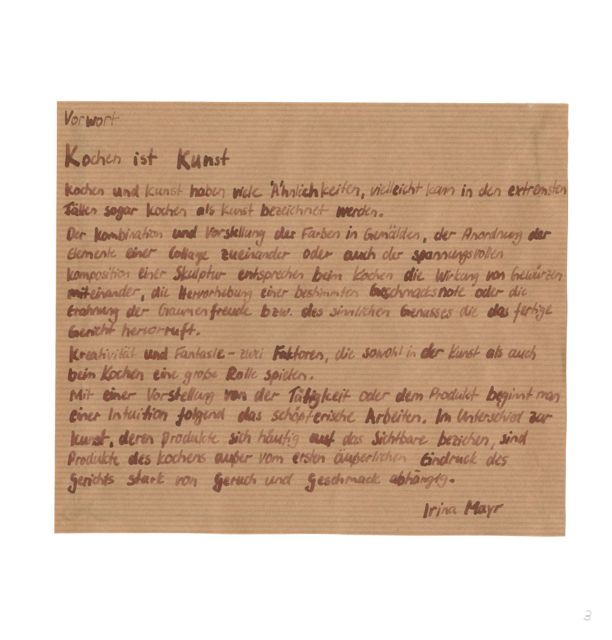 Vorwort
Kochen ist Kunst
Kochen und Kunst haben viele Ähnlichkeiten, vielleicht kann in den extremsten
Fällen sogar Kochen als Kunst bezeichnet werden.
Der Kombination und Vorstellung der Farben in Gemälden, der Anordnung der
Elemente einer Collage zueinander oder auch der spannungsvollen
Komposition einer Skulptur entsprechen beim Kochen die Wirkung von Gewürzen
miteinander, die Hervorhebung einer bestimmten Geschmacksnote oder die
Erahnung der Gaumenfreude bzw. des sinnlichen Genusses die das fertige
Gericht hervorruft.
Kreativität und Fantasie - zwei Faktoren, die sowohl in der Kunst als auch
beim Kochen eine große Rolle spielen.
Mit einer Vorstellung von der Tätigkeit oder dem Produkt beginnt man
einer Intuition folgend das schöpferische Arbeiten. Im Unterschied zur
Kunst, deren Produkte sich häufig auf das Sichtbare beziehen, sind
Produkte des Kochens außer vom ersten äußerlichen Eindruck des
Gerichts stark von Geruch und Geschmack abhängig.
Irina Mayr
3